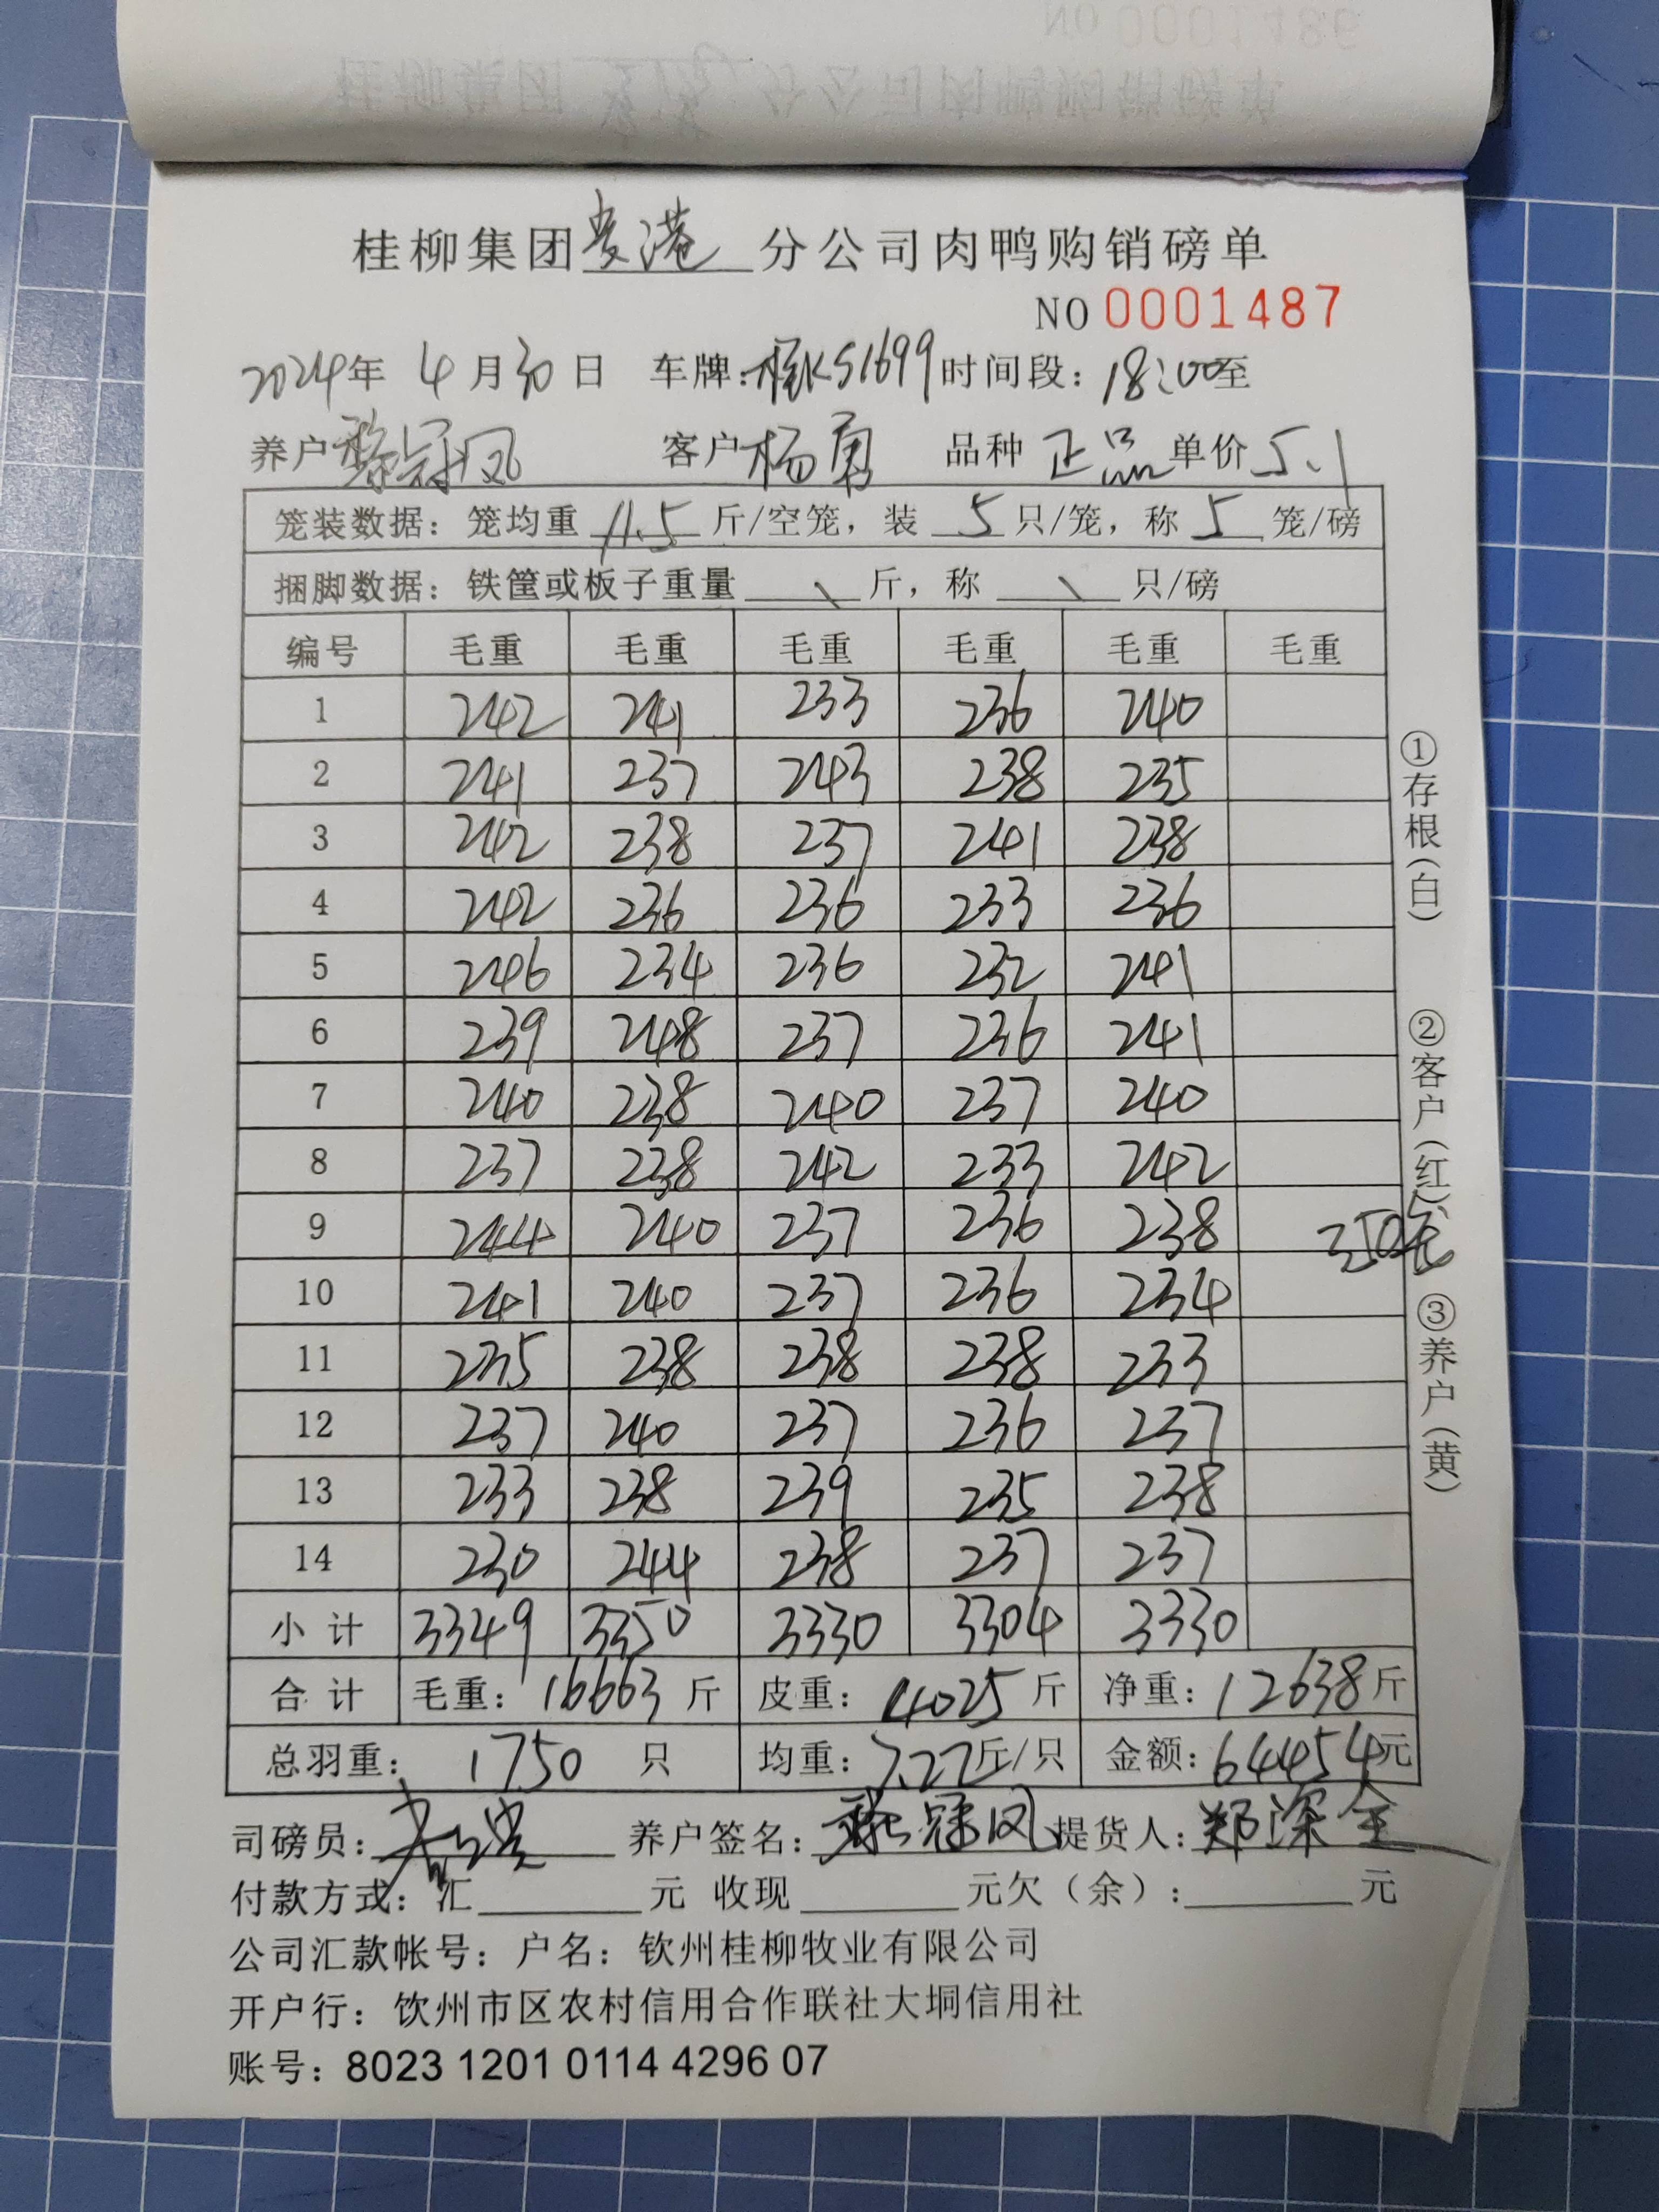 桂柳集团贵港分公司肉鸭购销磅单
NO 0001487
2024年 4月30日 车牌:桂KS1699 时间段: 18:00至
养户 黎冠凤 客户 杨勇 品种 正品 单价 5.1
笼装数据: 笼均重 11.5 斤/空笼, 装 5 只/笼, 称 5 笼/磅
捆脚数据: 铁筐或板子重量 \ 斤, 称 \ 只/磅
编号 毛重 毛重 毛重 毛重 毛重 毛重
1 242 241 233 236 240
2 241 237 243 238 235
3 242 238 237 241 238
4 242 236 236 233 236
5 246 234 236 232 241
6 239 248 237 236 241
7 240 238 240 237 240
8 237 238 242 233 242
9 244 240 237 236 238 350元
10 241 240 237 236 234
11 235 238 238 238 233
12 237 240 237 236 237
13 233 238 239 235 238
14 230 244 238 237 237
小计 3349 3350 3330 3304 3330
合计 毛重: 16663 斤 皮重: 4025 斤 净重: 12638 斤
总羽重: 1750 只 均重: 7.22斤/只 金额: 64454元
司磅员: 养户签名: 黎冠凤 提货人: 郑深全
付款方式: 汇 元 收现 元欠(余): 元
公司汇款帐号: 户名: 钦州桂柳牧业有限公司
开户行: 钦州市区农村信用合作联社大垌信用社
账号: 8023 1201 0114 4296 07
①存根(白) ②客户(红) ③养户(黄)